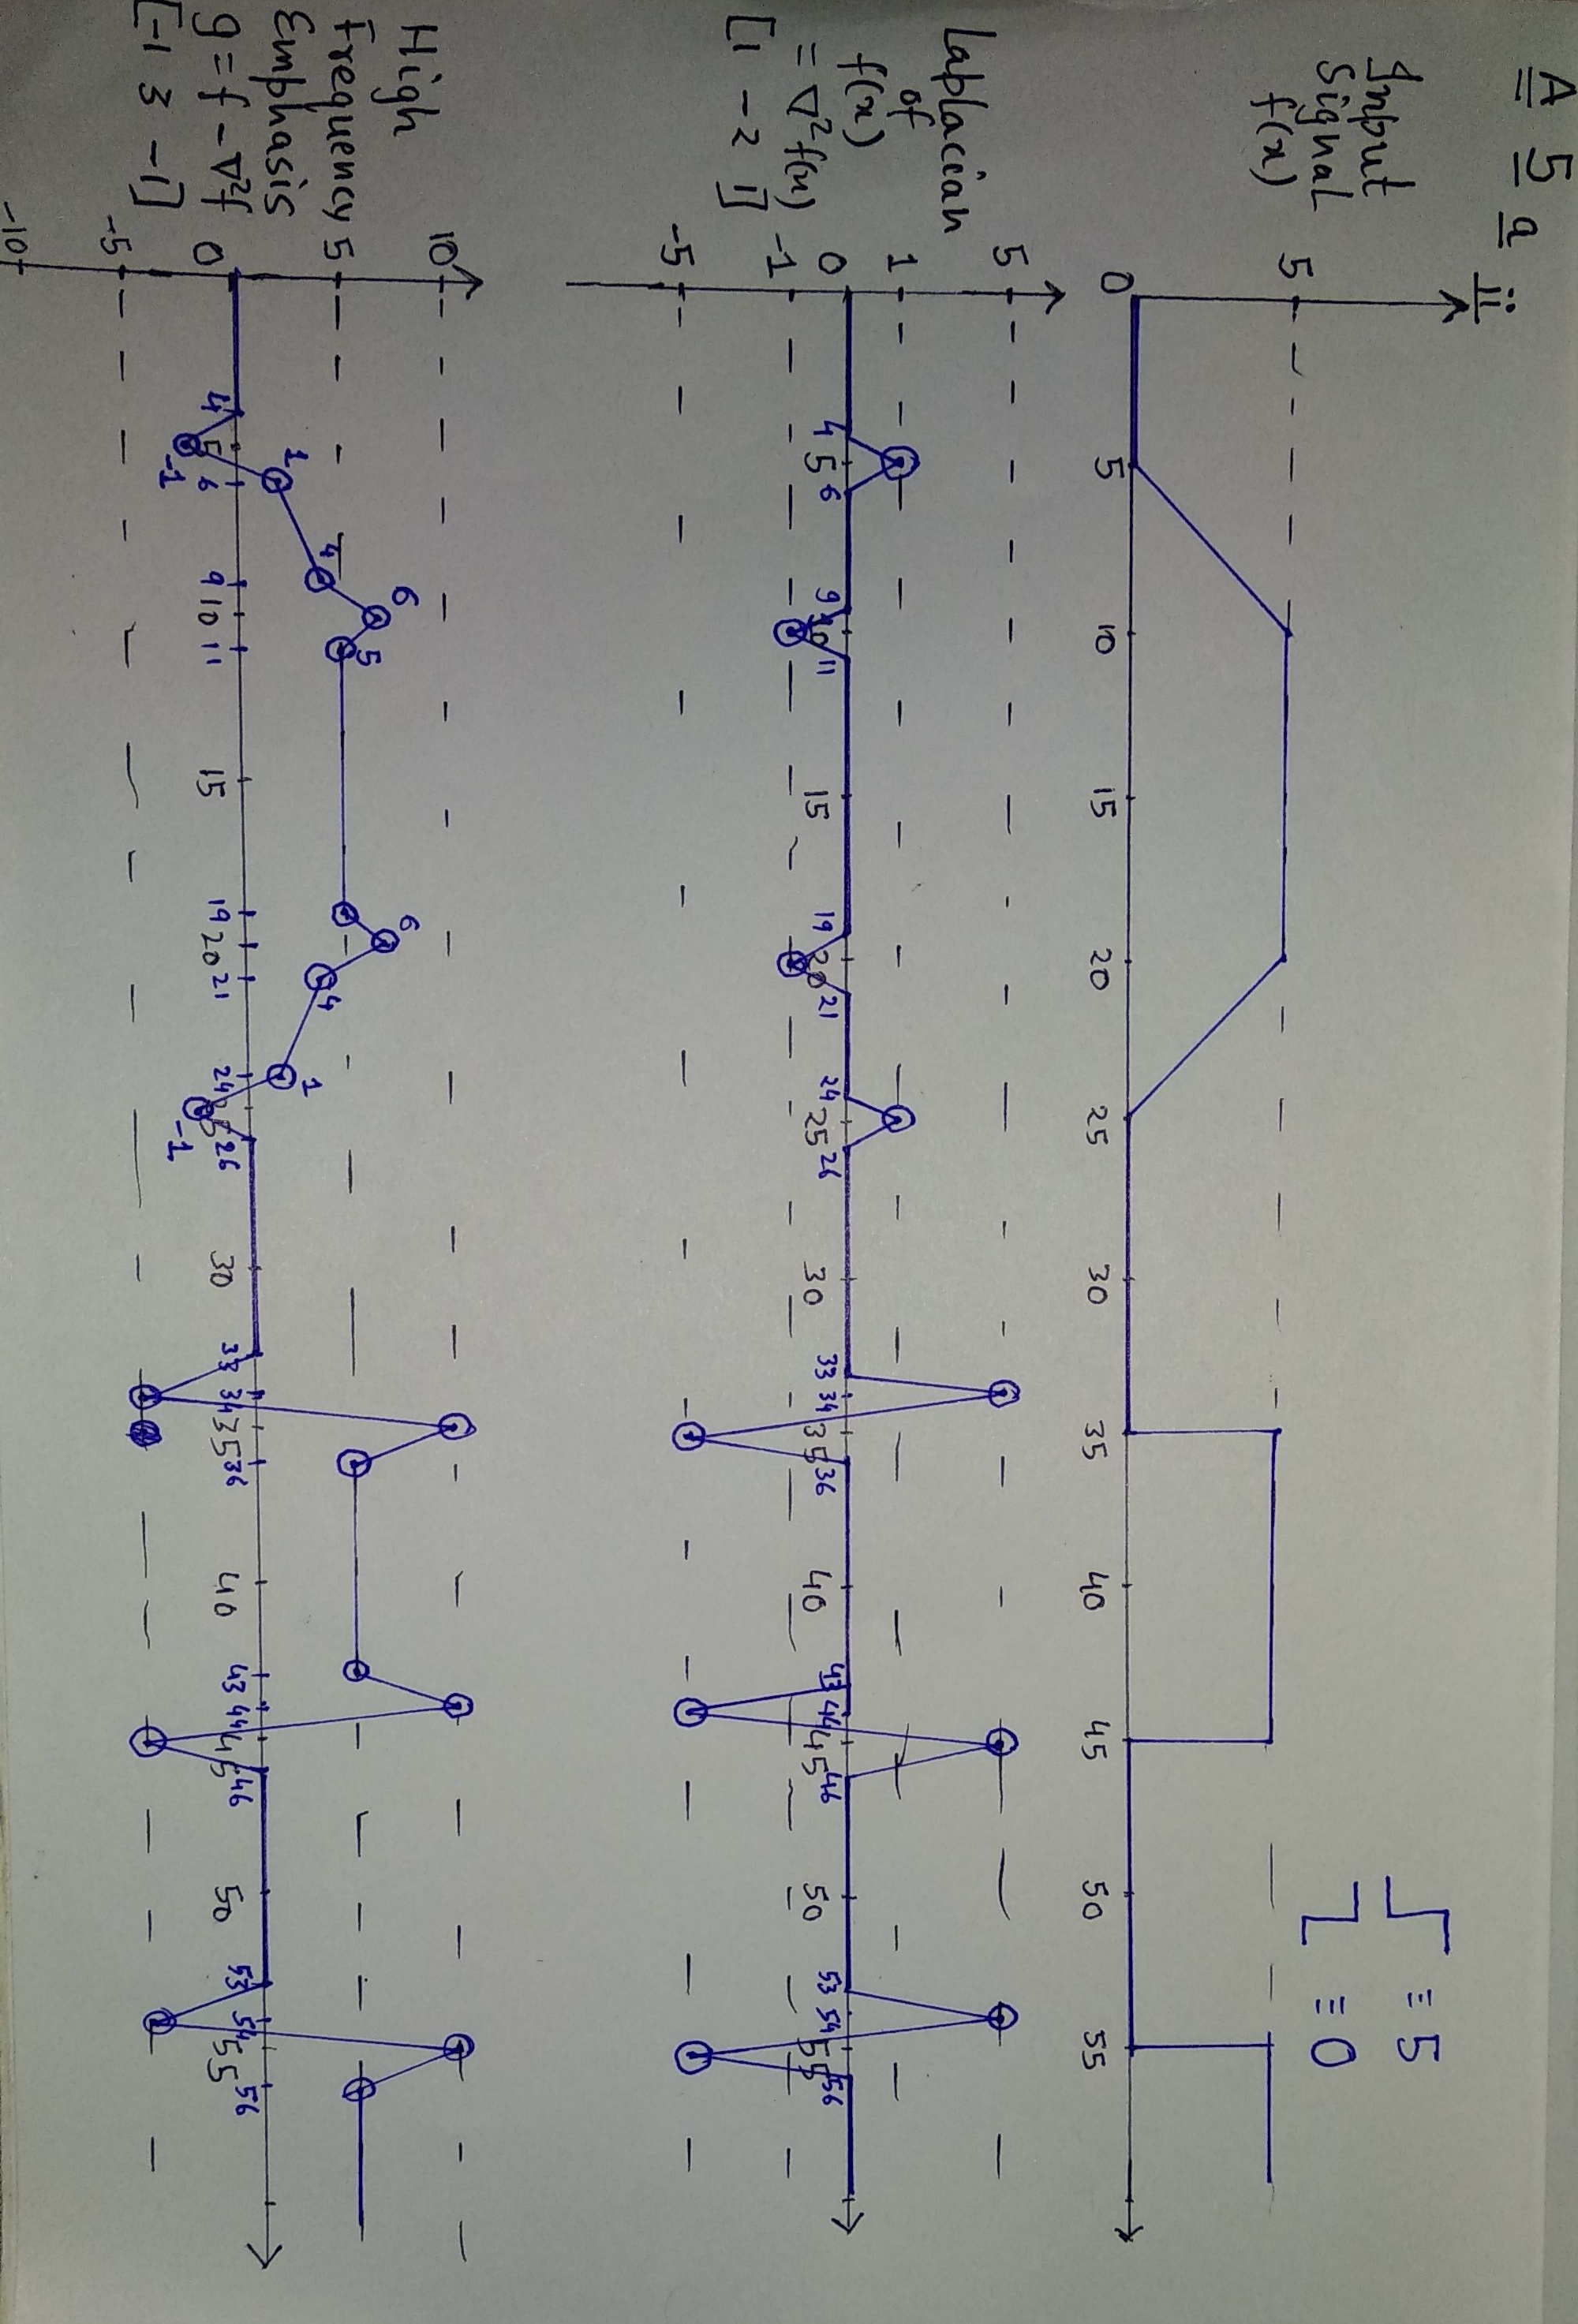 A 5 a ii
Input
Signal
f(x)
5
0
5 10 15 20 25 30 35 40 45 50 55
⎍ ≡ 5
≡ 0
Laplacian
of
f(x)
= ∇²f(x)
[1 -2 1]
5
1
0
-1
-5
4 5 6 9 10 11 15 19 20 21 24 25 26 30 33 34 35 36 40 43 44 45 46 50 53 54 55 56
High
Frequency
Emphasis
g = f - ∇²f
[-1 3 -1]
10
5
0
-5
-10
1 4 6 5 6 4 1
4 5 6 9 10 11 15 19 20 21 24 25 26 30 33 34 35 36 40 43 44 45 46 50 53 54 55 56
-1 -1